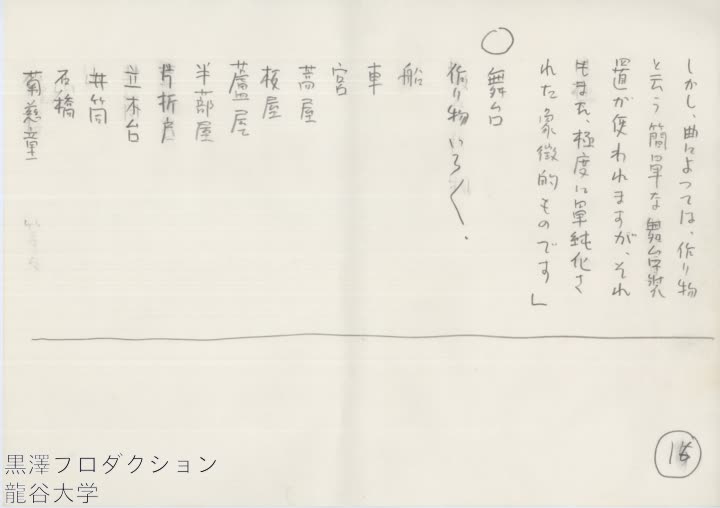 しかし、曲によつては、作り物
と云う簡単な舞台装
置が使われますが、それ
もまた、極度に単純化さ
れた象徴的ものです」
○
舞台
作り物いろ〱.
船
車
宮
藁屋
板屋
蘆屋
半蔀屋
片折戸
立木台
井筒
石橋
菊慈童
16
黒澤プロダクション
龍谷大学